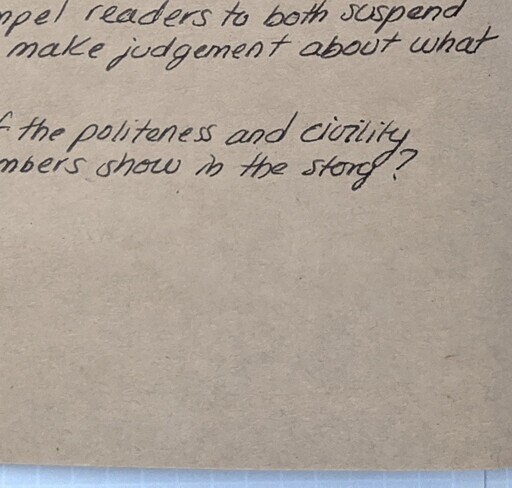 mpel readers to both suspend
make judgement about what
f the politeness and civility
mbers show in the story?